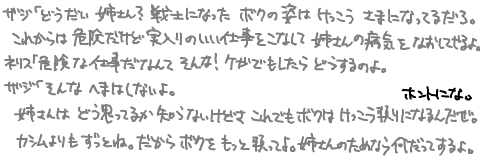 ザジ「どうだい 姉さん？ 戦士になった ボクの姿は けっこう さまになってるだろ。
これからは 危険だけど 実入りのいい仕事をこなして 姉さんの病気を なおしてせるよ。
ネリス「危険な仕事だなんて そんな！ ケガでもしたら どうするのよ。
ザジ「そんな へまはしないよ。
ホントにな。
姉さんは どう思ってるか知らないけどさ これでもボクは けっこう頼りになるんだぜ。
カシムよりも ずっとね。だから ボクを もっと頼ってよ。姉さんのためなら 何だってするよ。